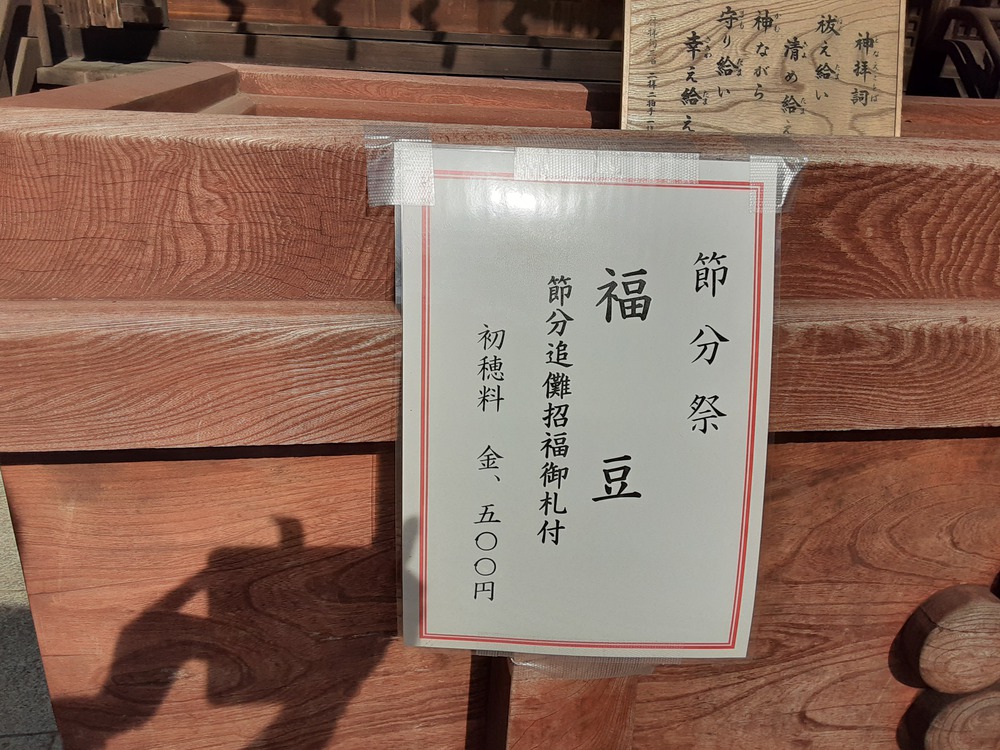 神拝詞
祓え給い
清め給え
神ながら
守り給い
幸え給え
節分祭
福豆
節分追儺招福御札付
初穂料 金、五〇〇円